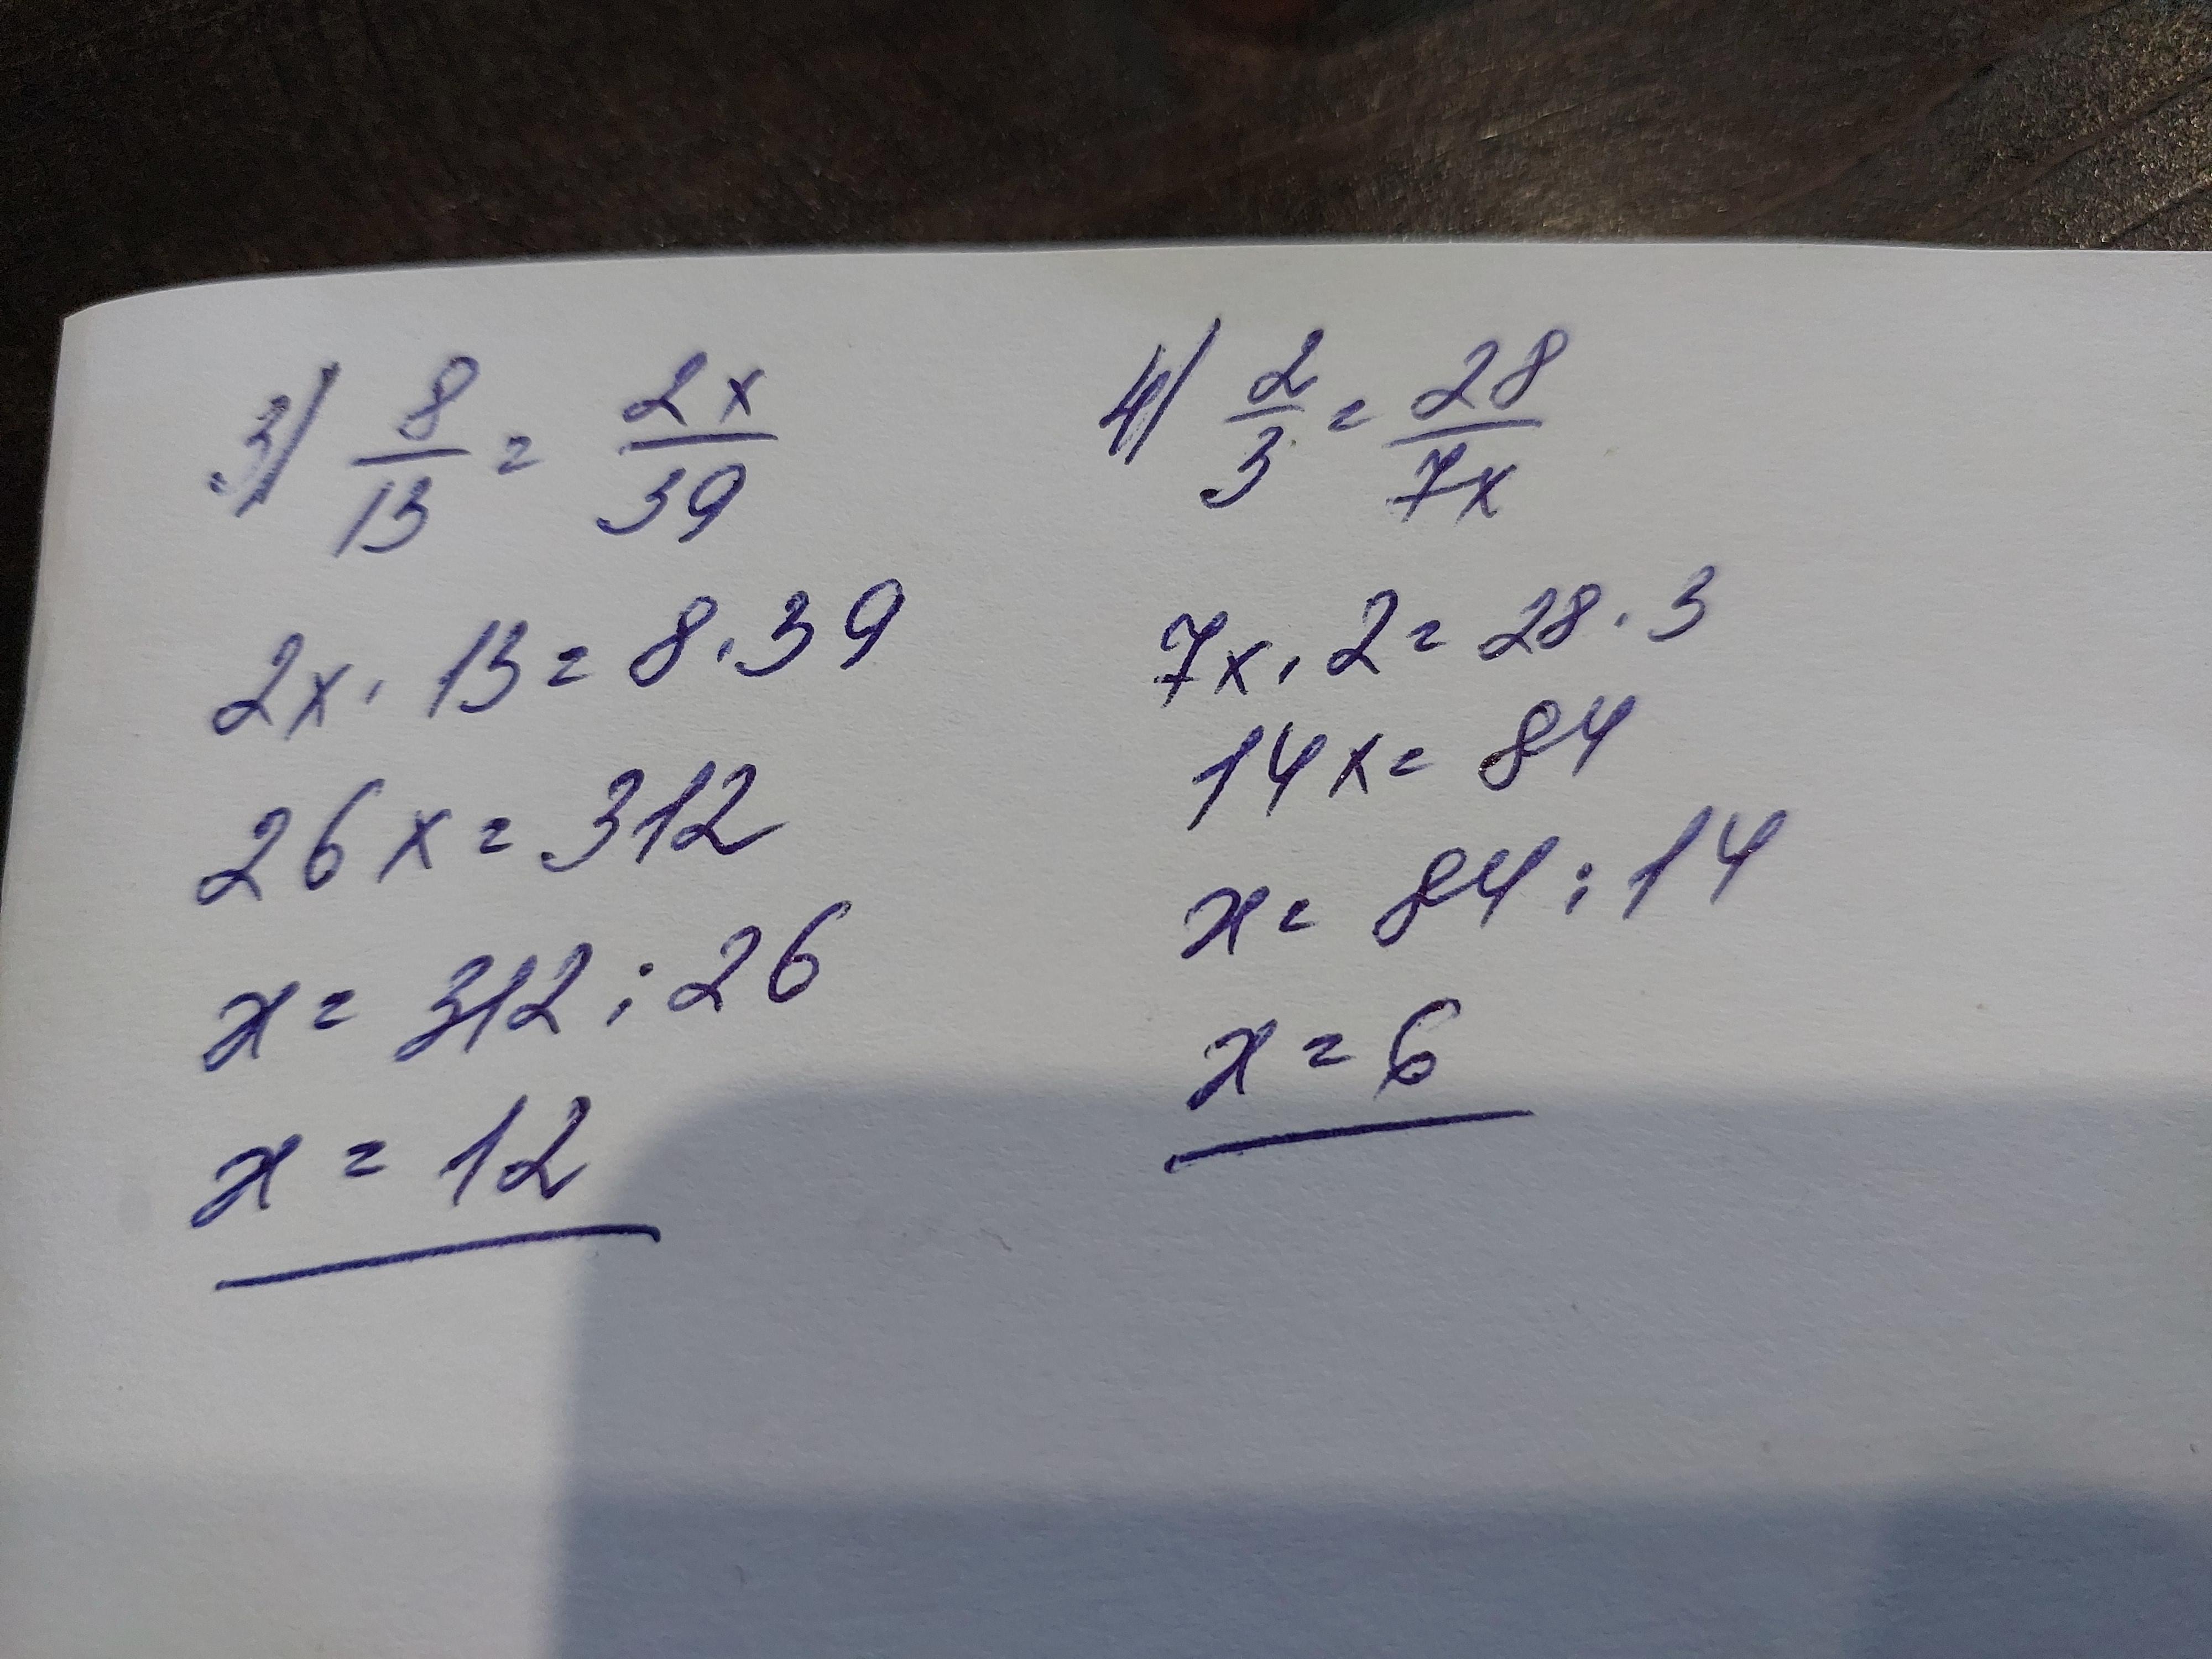 3) 8/13 = 2x/39
2x · 13 = 8 · 39
26x = 312
x = 312 : 26
x = 12
4) 2/3 = 28/7x
7x · 2 = 28 · 3
14x = 84
x = 84 : 14
x = 6